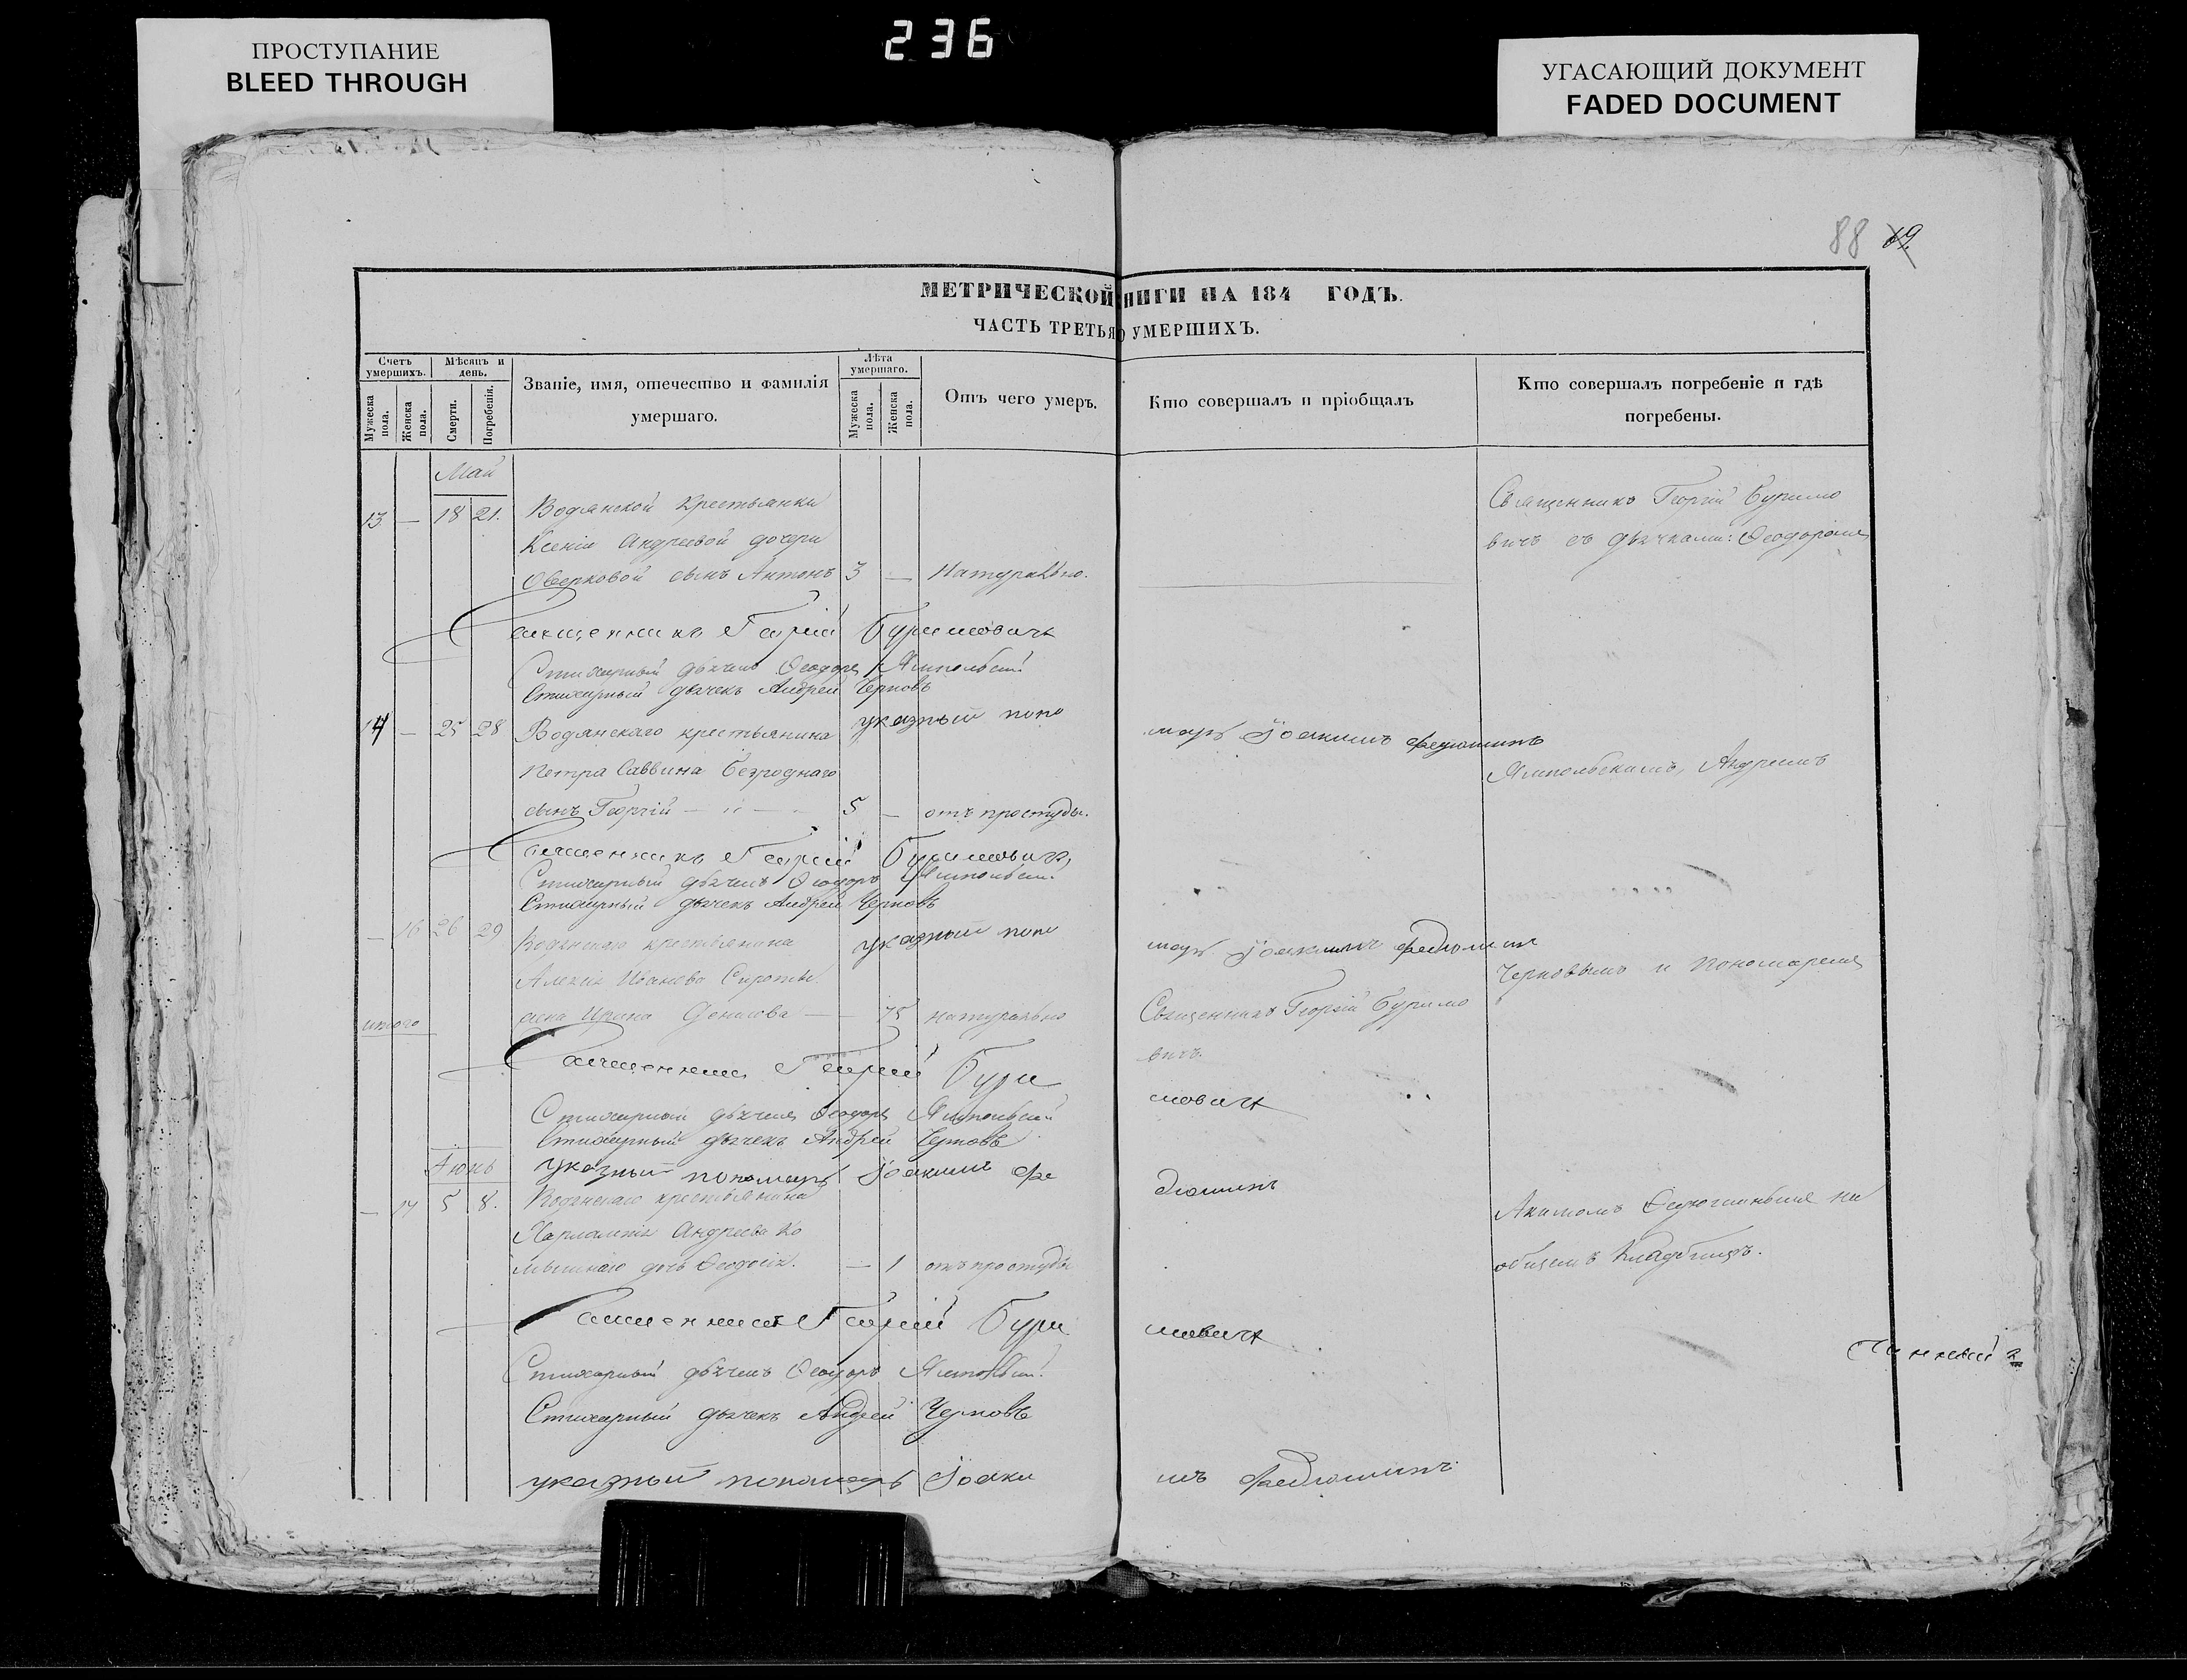 ПРОСТУПАНИЕ
BLEED THROUGH
236
УГАСАЮЩИЙ ДОКУМЕНТ
FADED DOCUMENT
88 69.
МЕТРИЧЕСКОЙ НИГИ НА 184 ГОДЪ.
ЧАСТЬ ТРЕТЬЯ О УМЕРШИХЪ.
Счетъ умершихъ.
Мужеска пола.
Женска пола.
Мѣсяцъ и день.
Смерти.
Погребенія.
Званіе, имя, отечество и фамилія умершаго.
Лѣта умершаго.
Мужеска пола.
Женска пола.
Отъ чего умеръ.
Кто совершалъ и пріобщалъ
Кто совершалъ погребеніе и гдѣ погребены.
Май
13 — 18 21. Водянской крестьянки
Ксеніи Андреевой дочери
Оверковой сынъ Антонъ 3 — Натурально.
Священникъ Георгій Буримо
вичъ съ дьячками: Ѳеодоромъ
Священникъ Георгій Буримовичъ
Стихарный дьячекъ Ѳеодоръ Ямпольскій
Стихарный дьячекъ Андрей Черновъ
указный поно марь Іоакимъ Федюшинъ
14 — 25 28 Водянскаго крестьянина
Петра Саввина Безроднаго
сынъ Георгій — 5 — отъ простуды.
Ямпольскимъ, Андреемъ
Священникъ Георгій Буримовичъ
Стихарный дьячекъ Ѳеодоръ Ямпольскій
Стихарный дьячекъ Андрей Черновъ
указный поно марь Іоакимъ Федюшинъ
— 16 26 29 Водянскаго крестьянина
Алексія Иванова Сироты
жена Ирина Денисова — 75 натурально
итого
Священникъ Георгій Буримо
вичъ.
Черновымъ и Пономаремъ
Священникъ Георгій Бури мовичъ
Стихарный дьячекъ Ѳеодоръ Ямпольскій
Стихарный дьячекъ Андрей Черновъ
указный пономарь Іоакимъ Фе дюшинъ
Іюнь
— 17 5 8. Водянскаго крестьянина
Харлампія Андреева Ко
дочь Ѳеодосія. — 1 отъ простуды
Акимомъ Ѳедюшинымъ на
общемъ кладбищѣ.
Священникъ Георгій Бури мовичъ
Стихарный дьячекъ Ѳеодоръ Ямпольскій
Стихарный дьячекъ Андрей Черновъ
указный пономарь Іоаки мъ Федюшинъ